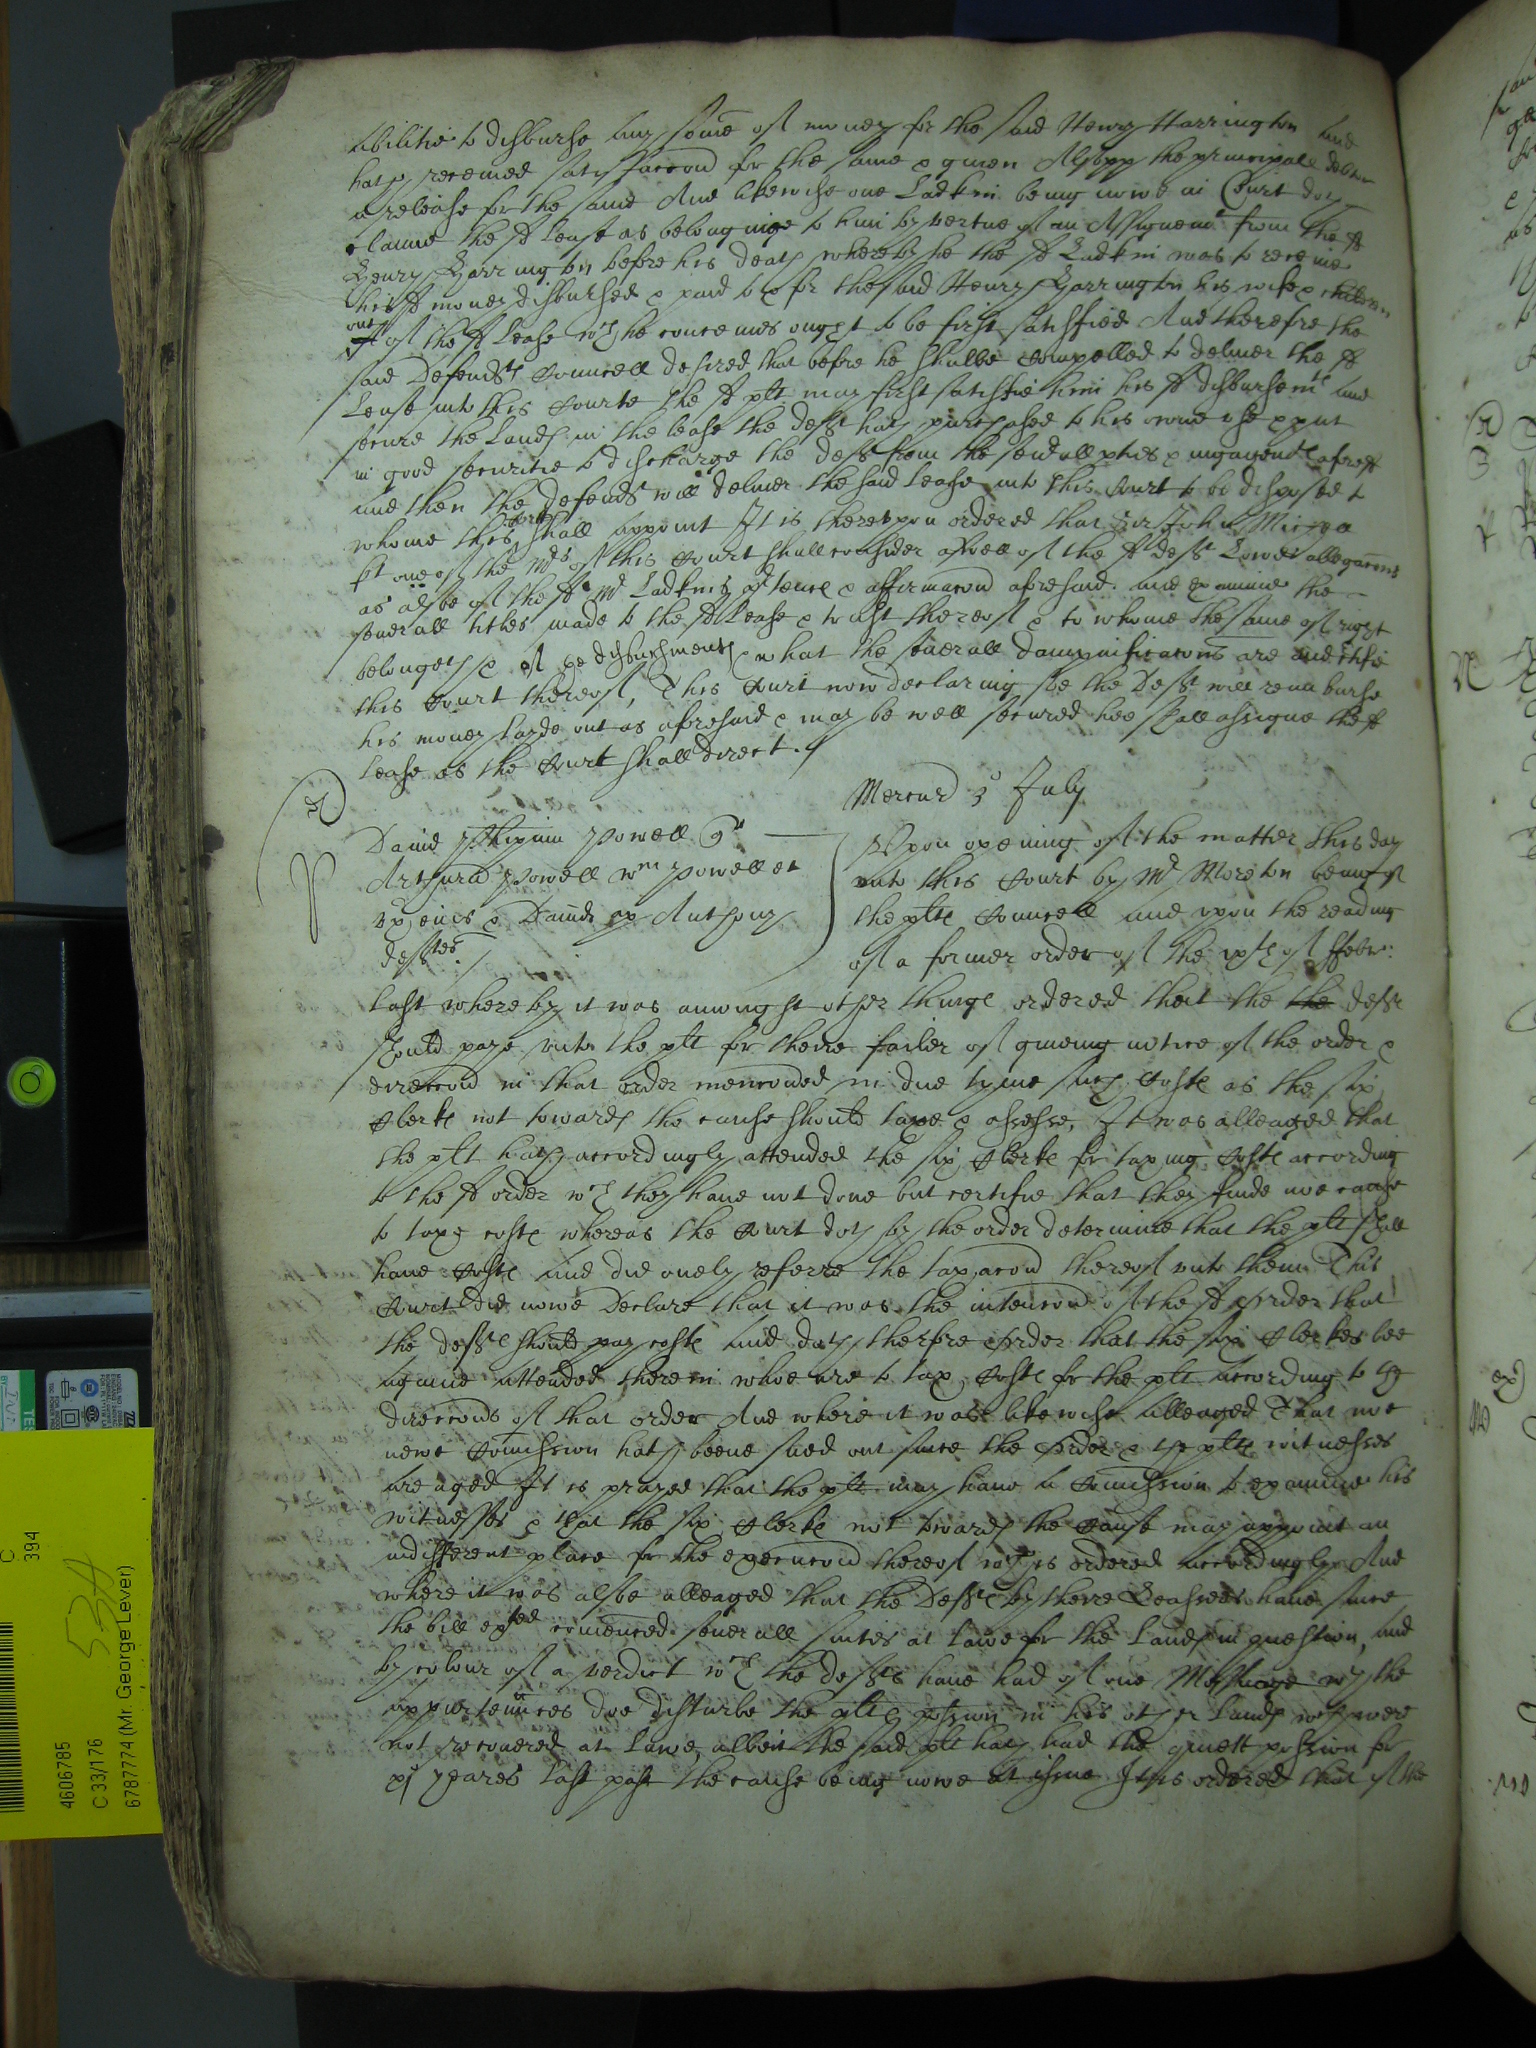 abilitie to disburse any some of money for the said Henry Harrington and
hath receaued satisfaccon for the same & giuen Alsopp the principall debtor
a release for the same And likewise one Ladkin being nowe in Court doth
clayme the sd lease as belonginge to him by vertue of an Assignemt from the sd
Henry Harrington before his death whereby he the sd Ladkin was to receiue
his sd money disbursed & paid to & for the said Henry Harrington his wife & children
out of the sd lease wch he conceiues ought to be first satisfied And therefore the
said Defendts Councell desired that before he shalbe compelled to deliuer the sd
Lease into this Courte the sd plt may first satisfie him his sd disbursemts and
secure the Lands in the lease the deft hath purchased to his owne use & put
in good securitie to discharge the deft from the seuerall & ingagemts aforesd
and then the Defendt will deliuer the said lease into this Court to be disposed to
whome this Court shall appoint It is therevpon ordered that Sir John
kt one of the Mrs of this Court shall consider aswell of the sd deft Lowes allegacons
as alsoe of the sd Mr Ladkins & affirmacon aforesaid and examine the
seuerall titles made to the sd Lease & trust thereof & to whome the same of right
belongeth & of ye disbursments & what the seuerall dampnificacons are and certifie
this Court thereof, This Court now declaring the Deft will reimburse
his money layde out as aforesaid & may be well secured hee shall assigne the sd
lease as the Court shall direct.
Mercur 3o July
R
P
Dauid Powell qr
Arthurū Powell Wm Powell et
vx eius & Dauid ap Anthony
deftes
Vpon opening of the matter this day
vnto this Court by Mr Moreton being of
the plts Councell and vpon the reading
of a former order of the of ffebr:
last whereby it was amongst other things ordered that the the defts
should paye vnto the plt for theire failer of giueing notice of the order &
direccon in that order mencioned in due tyme such Costs as the six
Clerks not towards the cause should taxe & assesse, It was alleaged that
the plt hath accordingly attended the six Clerks for taxing Costs according
to the sd order wch they haue not done but certifie that they finde noe cause
to taxe costs whereas the Court doth by the order determine that the plt shall
haue Costs and did onely referre the taxacon thereof vnto them This
Court did nowe Declare that it was the intencon of the sd Order that
the defts should pay costs and doth therfore Order that the six Clerkes bee
againe attended therein whoe are to tax Costs for the plt according to the
direccons of that order And where it was likewise alleaged That noe
newe Comission hath beene sued out since the Order & the plts witnesses
are aged It is prayed that the plt may haue a Comission to examine his
witnesses & that the six Clerks not towards the Cause may appoint an
indifferent place for the execucon thereof wch is ordered accordingly And
where it was alsoe alleaged that the Defts by theire Leassees haue since
the bill comenced seuerall suites at lawe for the Lands in question, and
by colour of a verdict wch the defts haue had of one Messuage wth the
appurtennces doe disturbe the plts possion in his other Lands wch were
not recouered at Lawe, albeit the said plt hath had the quiett possion for
xj yeares last past the cause being nowe at issue It is ordered that if the
C
394
4606785
C 33/176
53A
6787774 (Mr. George Lever)